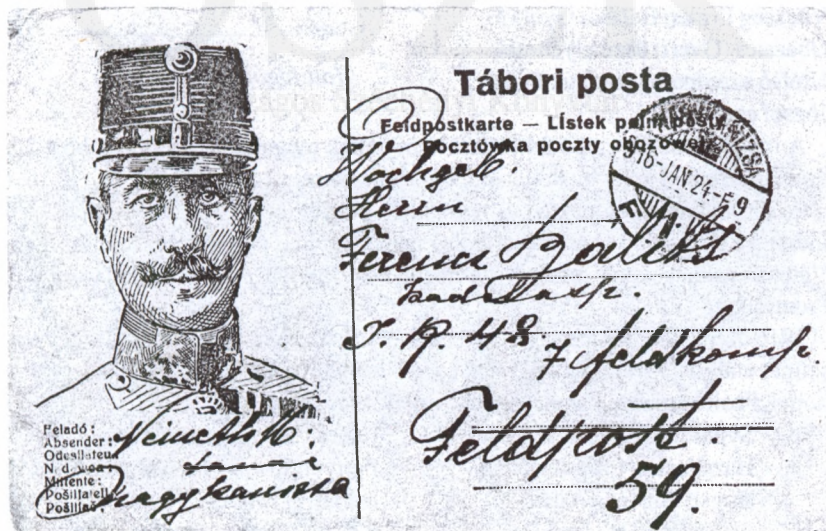 Tábori posta
Feldpostkarte — Lístek polní pošty
Pocztówka poczty obozowej
916-JAN.24-E 9
Wohlgeb.
Herrn
Ferencz
kad. Aasp.
I. R. 48.
7 feldkomp.
Feldpost.
59.
Feladó:
Absender:
Odesílatel
Mittente:
Németh
tanár
Nagykanizsa